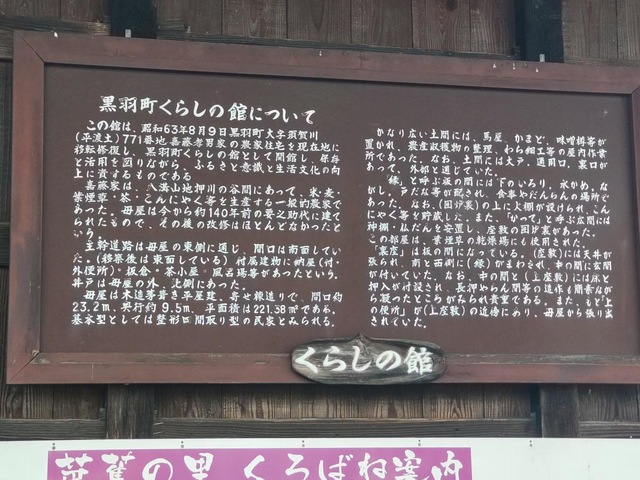 黒羽町くらしの館について
この館は、昭和63年8月9日黒羽町大字須賀川
(平渡土)771番地嘉藤孝男家の農家住宅を現在地に
移転修復し、黒羽町くらしの館として開館し、保存
と活用を図りながら、ふるさと意識と生活文化の向
上に資するものである
嘉藤家は、八溝山地押川の谷間にあって、米・麦・
葉煙草・茶・こんにゃく等を生産する一般的農家で
あった。母屋は今から約140年前の安之助代に建て
られたもので、その後の改修はほとんどなかったと
いう。
主幹道路は母屋の東側に通じ、間口は南面してい
た。(移築後は東面している)付属建物に納屋(付・
外便所)・板倉・茶小屋・風呂場等があったという。
井戸は母屋の外、北側にあった。
母屋は木造茅葺き平屋建、寄せ棟造りで、間口約
23.2m、奥行約9.5m、平面積は221.38㎡である。
基本型としては整形四間取り型の民家とみられる。
かなり広い土間には、馬屋、かまど、味噌樽等が
置かれ、農産収穫物の整理、わら細工等の屋内作業
所であった。なお、土間には大戸、通用口、裏口が
あって、外部と通じていた。
「縁」と呼ぶ板の間には下のいろり、水がめ、な
がし、戸だな等が配され、食事やだんらんの場所で
あった。なお、(囲炉裏)の上に大棚が設けられ、こん
にゃく等を貯蔵した。また、「かって」と呼ぶ広間には
神棚・仏だんを安置し、座敷の囲炉裏があった。
この部屋は、葉煙草の乾燥場にも使用された。
「裏座」は板の間になっている。(座敷)には天井が
張られ、南と西側に(縁)がまわされ、中の間に玄関
が付いていた。なお、中の間と(上座敷)には床と
押入が付設され、長押やらん間等の造作も簡素なが
ら凝ったところがみられ貴重である。また、もと「上
の便所」が(上座敷)の近傍にあり、母屋から張り出
されていた。
くらしの館
芭蕉の里 くろばね案内